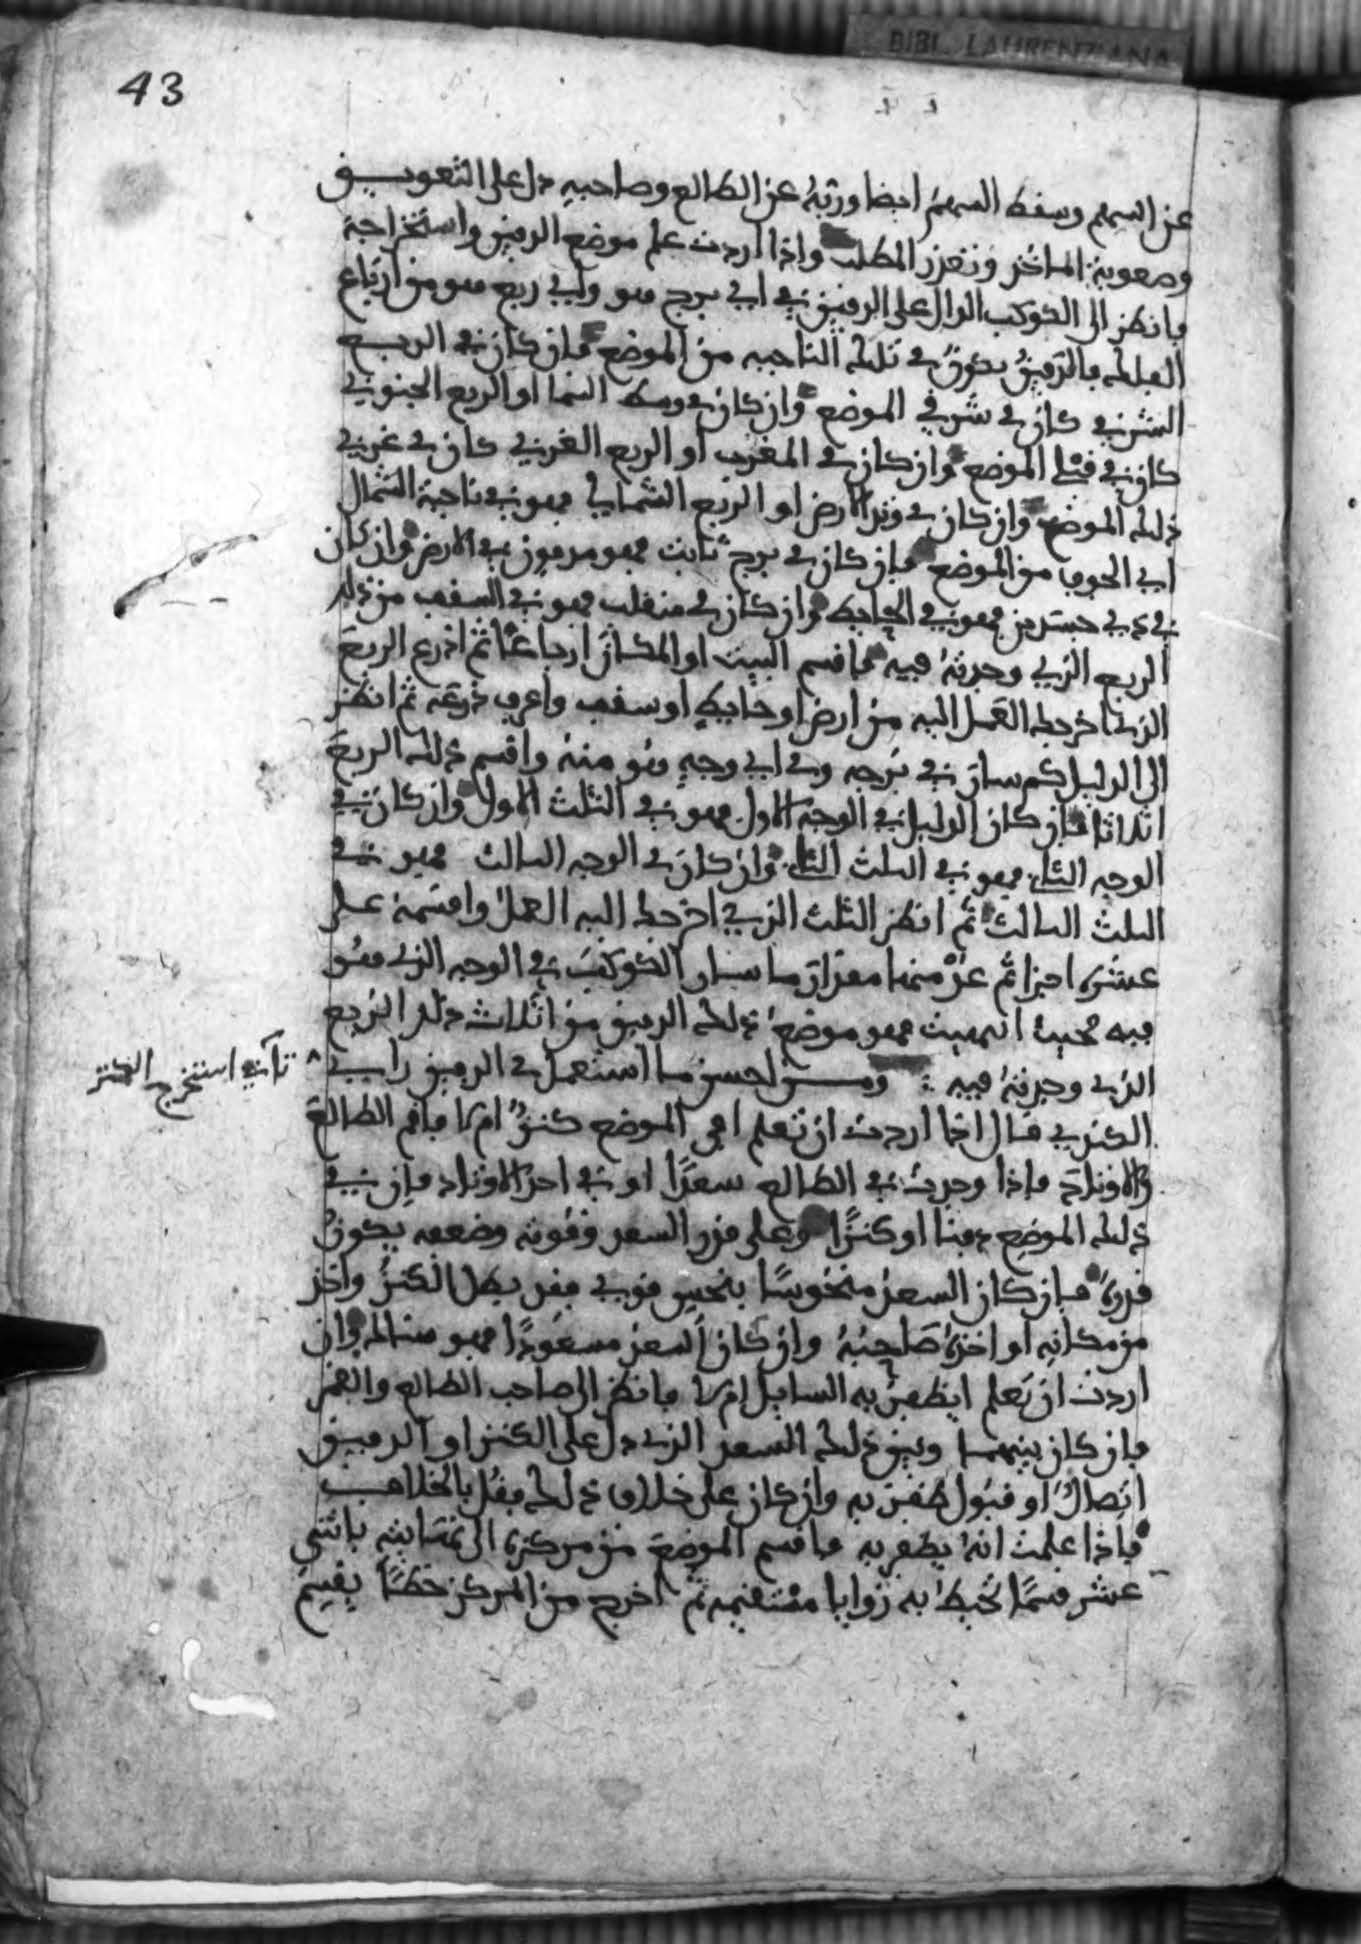 BIBL. LAURENZIANA
43
عن السهم وسقط السهم ايضا وربه عن الطالع وصاحبه دل على التعويق
وصعوبة الماخذ وتعذر المطلب واذا اردت علم موضع الدفين واستخراجه
فانظر الى الكوكب الدال على الدفين في اي برج هو وفي اي ربع هو من ارباع
الفلك فالدفين يكون في تلك الناحية من الموضع فان كان في الربع
الشرقي كان في شرقي الموضع وان كان في وسط السما او الربع الجنوبي
كان في قبلي الموضع وان كان في المغرب او الربع الغربي كان في غربي
ذلك الموضع وان كان في وتد الارض او الربع الشمالي فهو في ناحية الشمال
الى الجوف من الموضع فان كان في برج ثابت فهو مدفون في الارض وان كان
في ذي جسدين فهو في الحايط وان كان في منقلب فهو في السقف من ذلك
الربع الذي وجدته فيه فاقسم البيت او المكان ارباعا ثم اذرع الربع
الذي اخرجك العمل اليه من ارض او حايط او سقف واعرف ذرعه ثم انظر
الى الدليل كم سار في برجه وفي اي وجه هو منه واقسم ذلك الربع
اثلاثا فان كان الدليل في الوجه الاول فهو في الثلث الاول وان كان في
الوجه الثاني فهو في الثلث الثاني وان كان في الوجه الثالث فهو في
الثلث الثالث ثم انظر الثلث الذي اخرجك اليه العمل واقسمه على
عشرة اجزا ثم عد منها مقدار ما سار الكوكب في الوجه الذي هو
فيه فحيث انتهيت فهو موضع ذلك الدفين من اثلاث ذلك الربع
الذي وجدته فيه ومن احسن ما استعمل في الدفين راي
تاتي استخرج الكنز
الكندي قال اذا اردت ان تعلم افي الموضع كنز ام لا فاقم الطالع
والاوتاد فاذا وجدت في الطالع سعدا او في احد الاوتاد فان في
ذلك الموضع دفينا او كنزا وعلى قدر السعد وقوته وضعفه يكون
قدره فان كان السعد منحوسا بنحس قوي فقد بطل الكنز واخذ
من مكانه او اخذه صاحبه وان كان السعد مسعودا فهو هنالك وان
اردت ان تعلم ايظفر به السايل ام لا فانظر الى صاحب الطالع والقمر
فان كان بينهما وبين ذلك السعد الذي دل على الكنز او الدفين
اتصال او قبول ظفر به وان كان على خلاف ذلك فقل بالخلاف
فاذا علمت انه يظفر به فاقسم الموضع من مركزه الى نهايته باثني
عشر قسما تحيط به زوايا مستقيمه ثم اخرج من المركز خطا يقيم